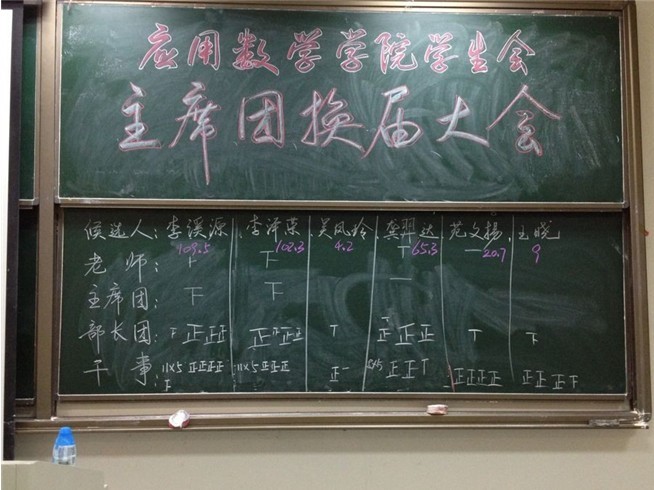 应用数学学院学生会
主席团换届大会
候选人：李溪源 李泽荣 吴凤玲 龚羿达 范文扬 王晓
109.5 102.3 4.2 65.3 20.7 9
老师： 下 下 丅 一
主席团： 下 下 一
部长团： 下 正正正 正正正正 丅 正正正 丅 下
干事： 11×5 正正正正 11×5 正正正正 正一 正正丅 正正正正 正正正下
正